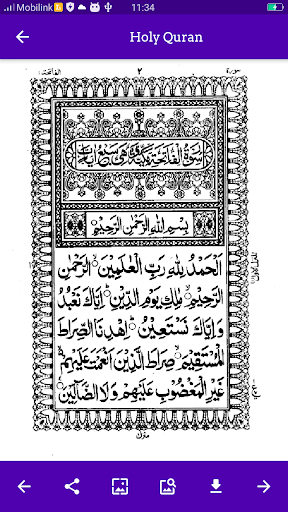 Mobilink 11:34
Holy Quran
الفاتحة ٢ سورة
سورة الفاتحة مكية وهي سبع ايات
بِسْمِ اللهِ الرَّحْمٰنِ الرَّحِيْمِ
اَلْحَمْدُ لِلّٰهِ رَبِّ الْعٰلَمِيْنَ ۙ الرَّحْمٰنِ
الرَّحِيْمِ ۙ مٰلِكِ يَوْمِ الدِّيْنِ ؕ اِيَّاكَ نَعْبُدُ
وَاِيَّاكَ نَسْتَعِيْنُ ؕ اِهْدِنَا الصِّرَاطَ
الْمُسْتَقِيْمَ ۙ صِرَاطَ الَّذِيْنَ اَنْعَمْتَ عَلَيْهِمْ ۙ
غَيْرِ الْمَغْضُوْبِ عَلَيْهِمْ وَلَا الضَّآلِّيْنَ
منزل